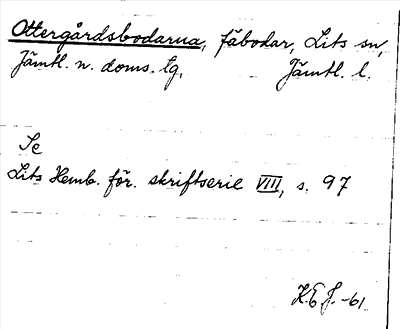 Ottergårdsbodarna, fäbodar, Lits sn,
Jämtl. n. doms. tg, Jämtl. l.
Se
Lits Hemb. för. skriftserie VIII, s. 97
K.E.J. -61.